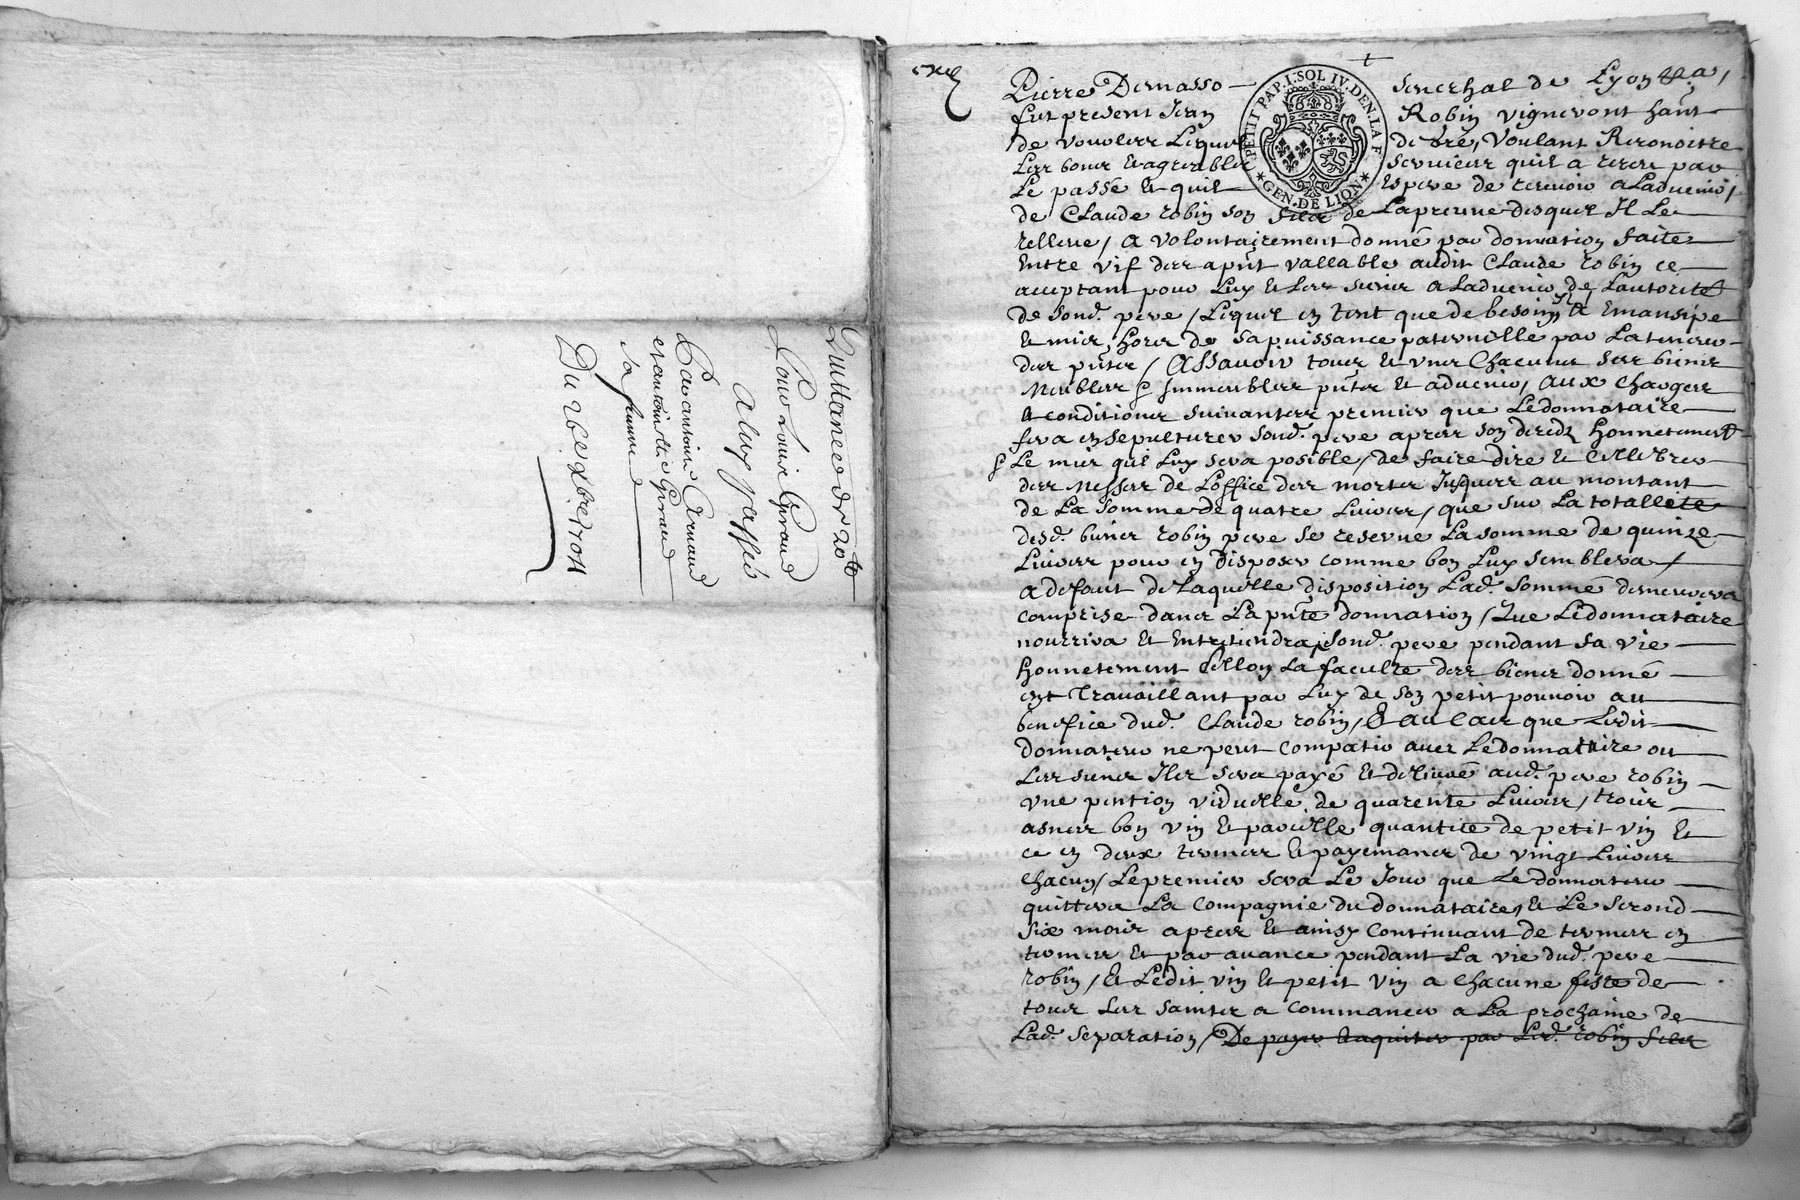 Quittance de 20lt
Pour Louis Giraud
a luy passée
Par antoine Arnaud
et antoinette Giraud
sa femme
Du 26e Xbre 1701
PETIT PAP. I. SOL IV. DEN. LA F.
GEN. DE LION
Pierre Demasso Senechal de Lyon
fut present Jean Robin vigneront habt
de vouvlerr Lequel de gré, Voulant Reconoitre
Lerr boner et agreabler servicerr quil a receu par
Le passé et quil espere de recevoir a Ladvenir
de Claude robin son filer de Lapreuve desquel Il Le
relleve / a volontairement donné par donnation faite
Entre vif derr apnt vallable audit Claude robin ce
aceptant pour Luy et Lerr sienr a Ladvenir de Lautorité
de sond. pere / Lequel en tent que de besoing La Emansipe
et mier horer de sa puissance paternelle par La teneur
derr pnter / Assavoir touer et uner chacuner ser biener
Meublerr & Immeublerr pnter et advenir, aux chargerr
et conditioner suivanterr premier que Ledonnataire
fera ensepulturer sond. pere aprerr son decedz honnetement
& Le mier quil Luy sera posible / de faire dire et cellebrer
derr Messerr de Loffice derr morter Jusquerr au montant
de La somme de quatre Livrerr / que sur La totallité
desd. biener robin pere se reserve La somme de quinze
Livrerr pour en disposer comme bon Luy semblera /
a defaut de Laquelle disposition Lad. somme demeurera
comprise daner La pnte donnation / Que Ledonnataire
nourrira et Entretiendra sond. pere pendant sa vie
honnetement sellon La faculté derr biener donné
ent travaillant par Luy de son petit pouvoir au
benefice dud. Claude robin / Et au caer que Ledit
donnateur ne peut compatir avec Ledonnataire ou
Lerr siener Iler sera payé et delivré aud. pere robin
une pention viduelle de quarente Livrerr / troier
asnerr bon vin et pareille quantité de petit vin et
ce en deux termerr et payemaner de vingt Livrerr
chacun / Lepremier sera Le Jour que Le donnateur
quittera La compagnie du donnataire, et Le second
six moier aprerr et ainsy continuant de termerr en
termerr et par avance pendant La vie dud. pere
robin / et Ledit vin et petit vin a chacune feste de
touer Lerr sainter a commancer a La prochaine de
Lad. separation / De payer et aquiter par Led. robin filer